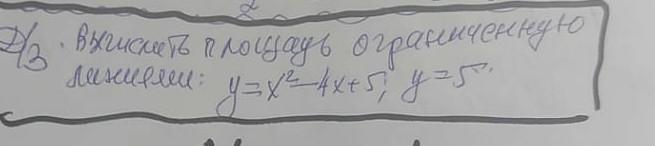 Д/З. Вычислить площадь ограниченную
линиями: y=x²-4x+5; y=5.